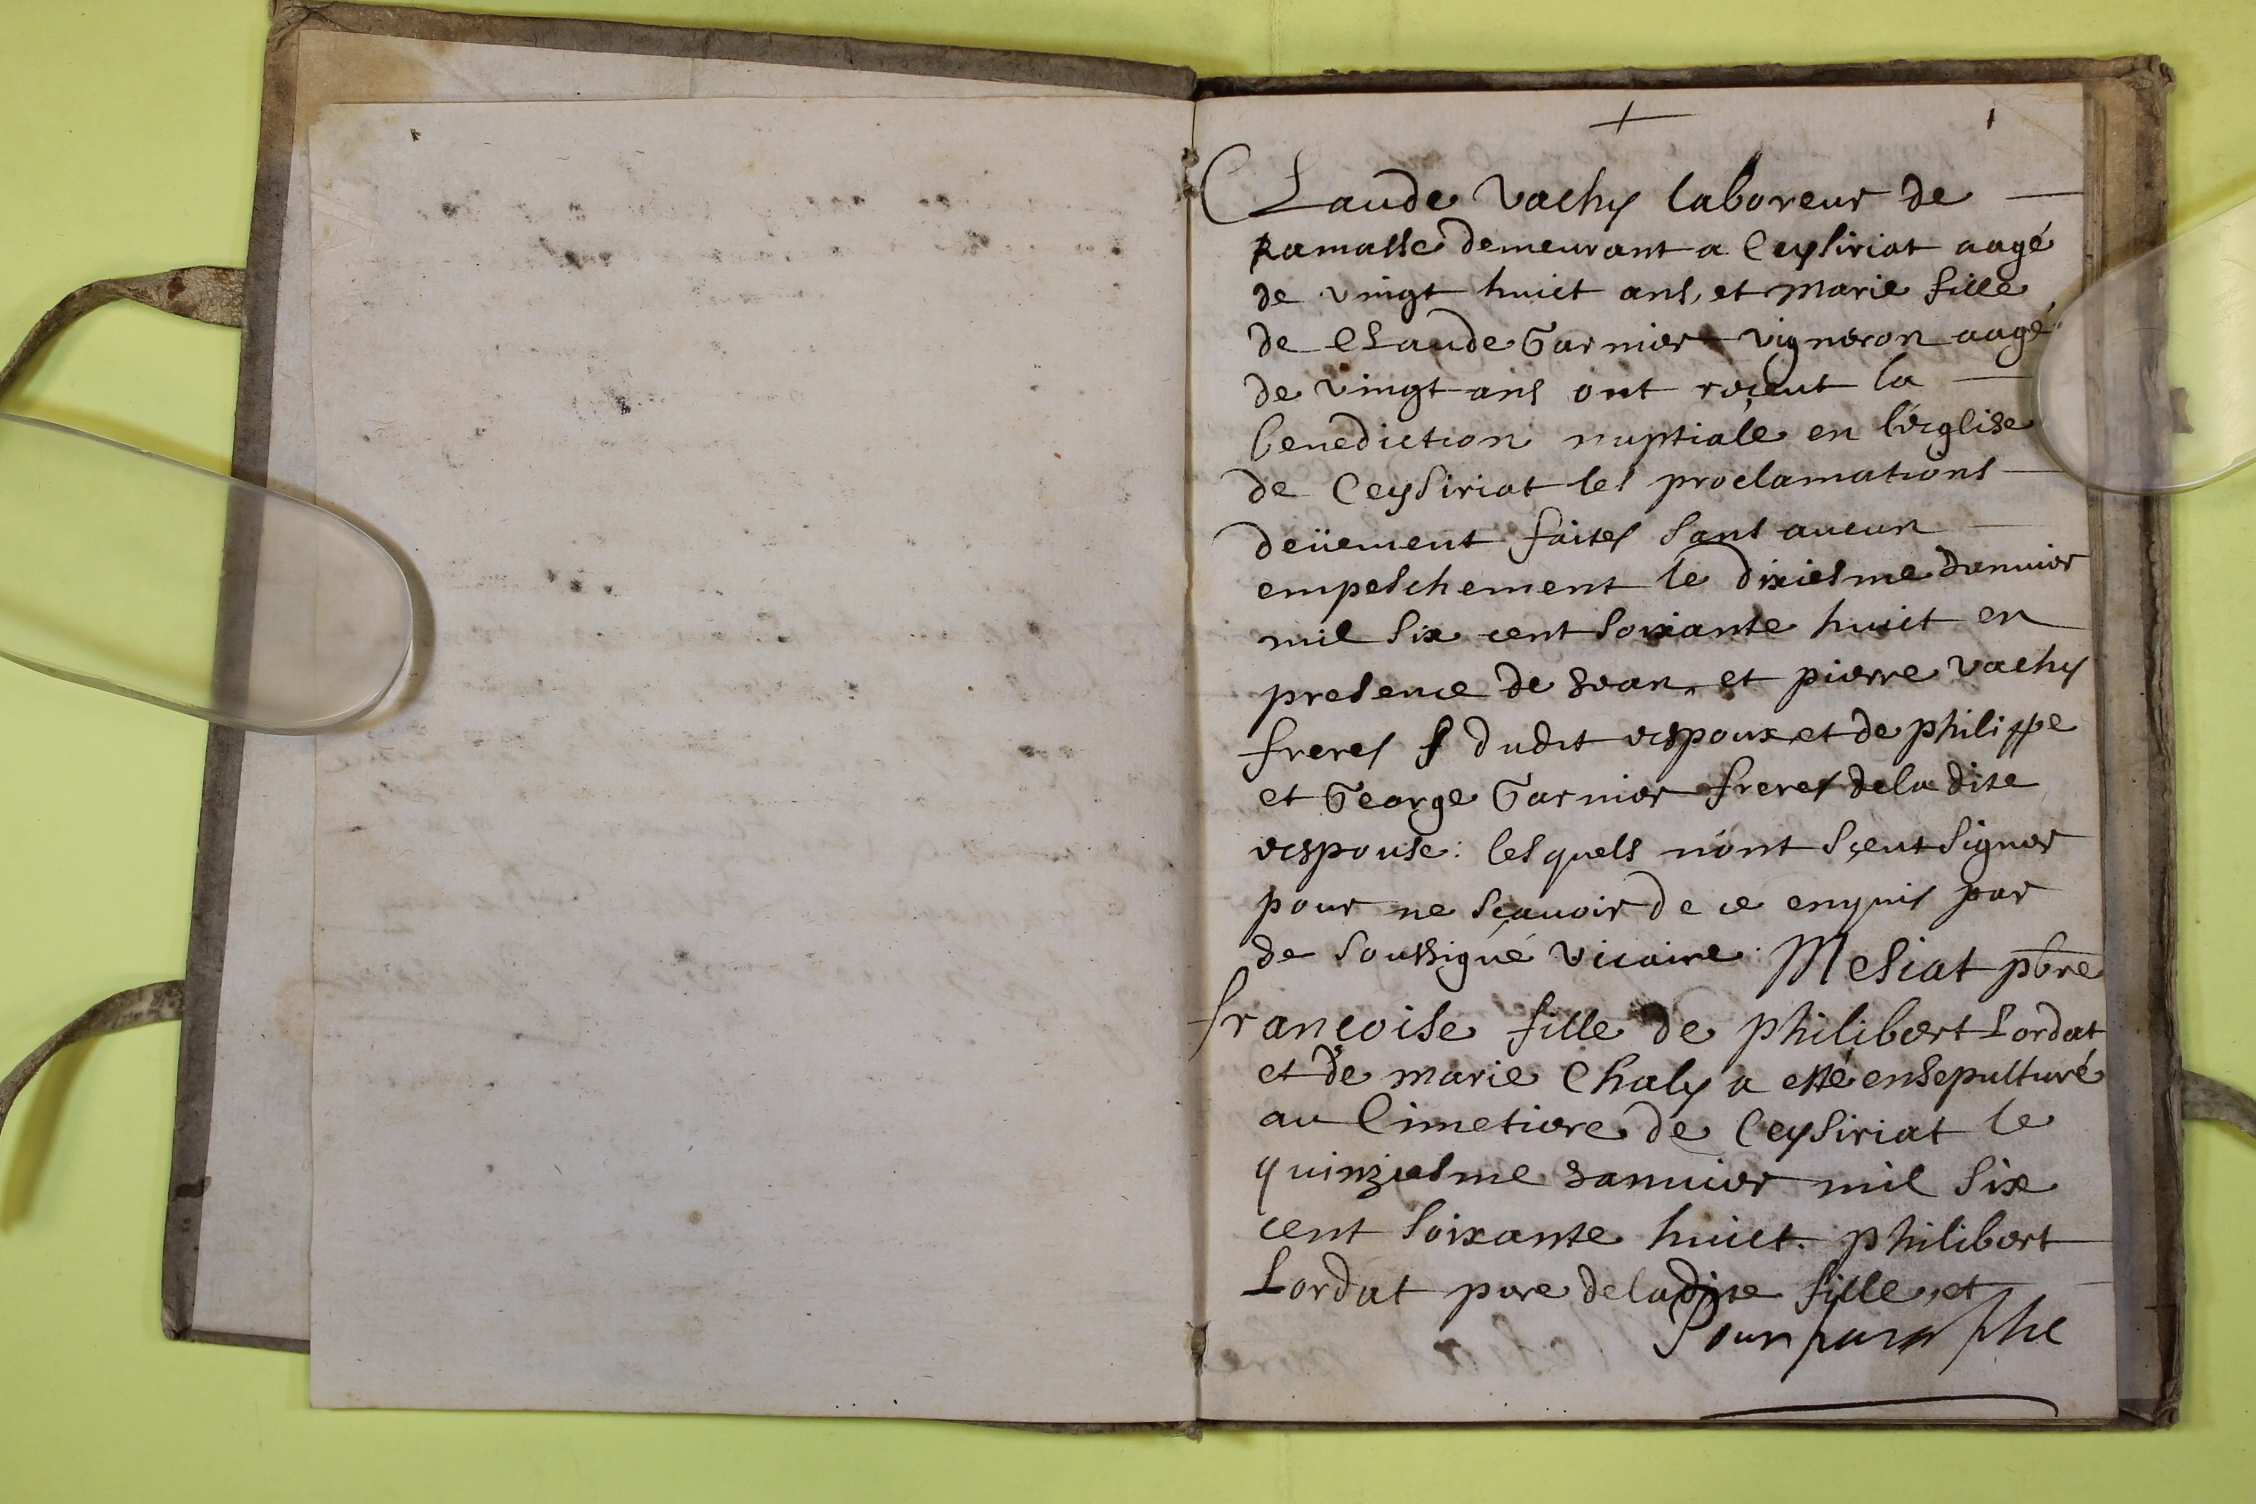 + 1
Claude Vachy laboreur de
Ramasse demeurant a Ceysiriat aagé
de vingt huict ans, et marie fille
de Claude Garnier vigneron aagé
de vingt ans ont reçeut la
benediction nuptiale en l'ecglise
de Ceysiriat les proclamations
deüement faites sans aucun
empeschement le dixiesme Januier
mil six cent soixante huict en
presence de Jean, et pierre vachy
freres dudit espoux et de philippe
et George Garnier freres de la dite
espouse: lesquels n'ont sçeut signer
pour ne sçauoir de ce enquis par
de soussigné vicaire: Mesiat pbre
francoise fille de philibert Lordat
et de marie Chaly a esté ensepulturé
au Cimetiere de Ceysiriat le
quinziesme Januier mil six
cent soixante huict. philibert
Lordat pere de ladite fille, et
Pour paraphe